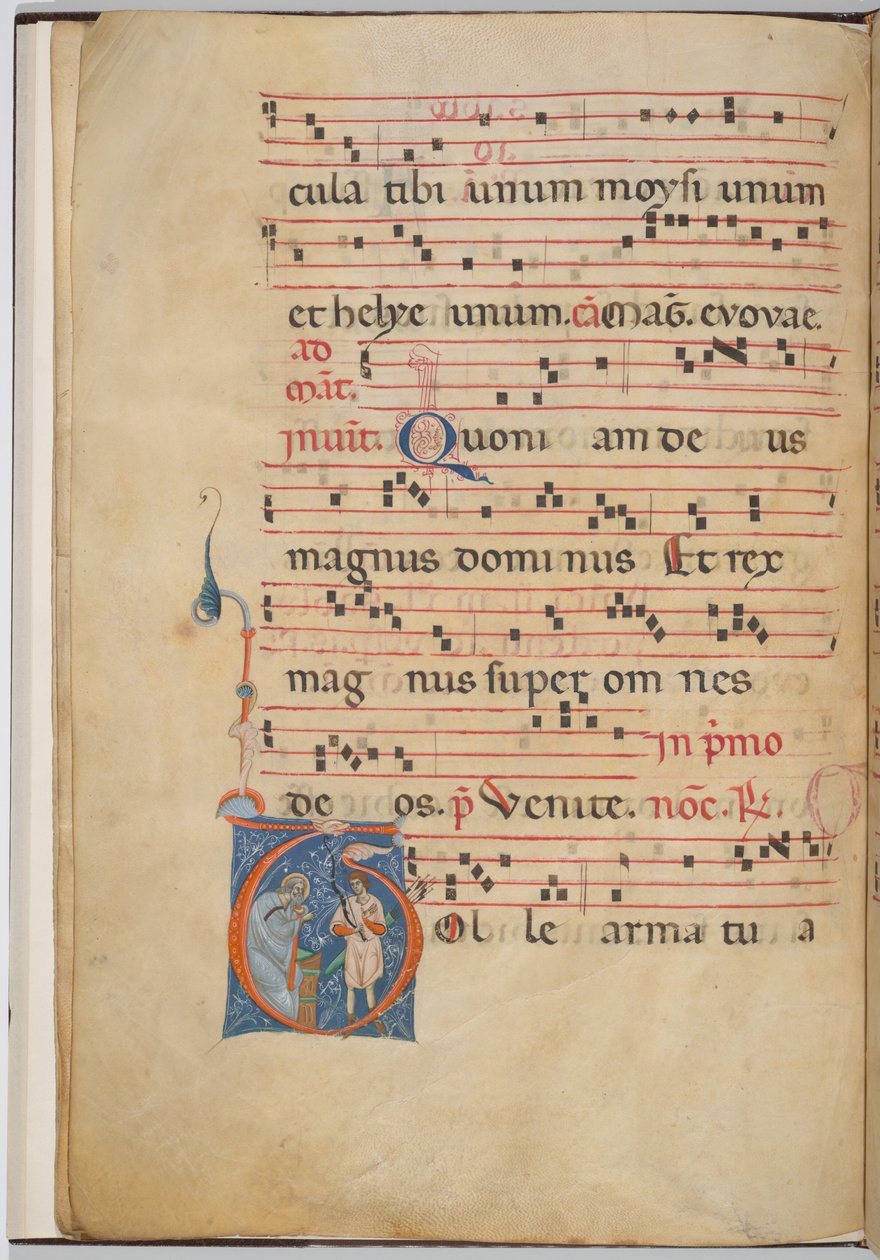 cula tibi unum moysi unum
et helye unum. cā Mag̅. evovae.
ad
Māt.
Invit̄. Quoni am de us
magnus domi nus Et rex
mag nus super om nes
In p̄mo
de os. p̄ Venite. noc̄. R̷.
Tol le arma tu a